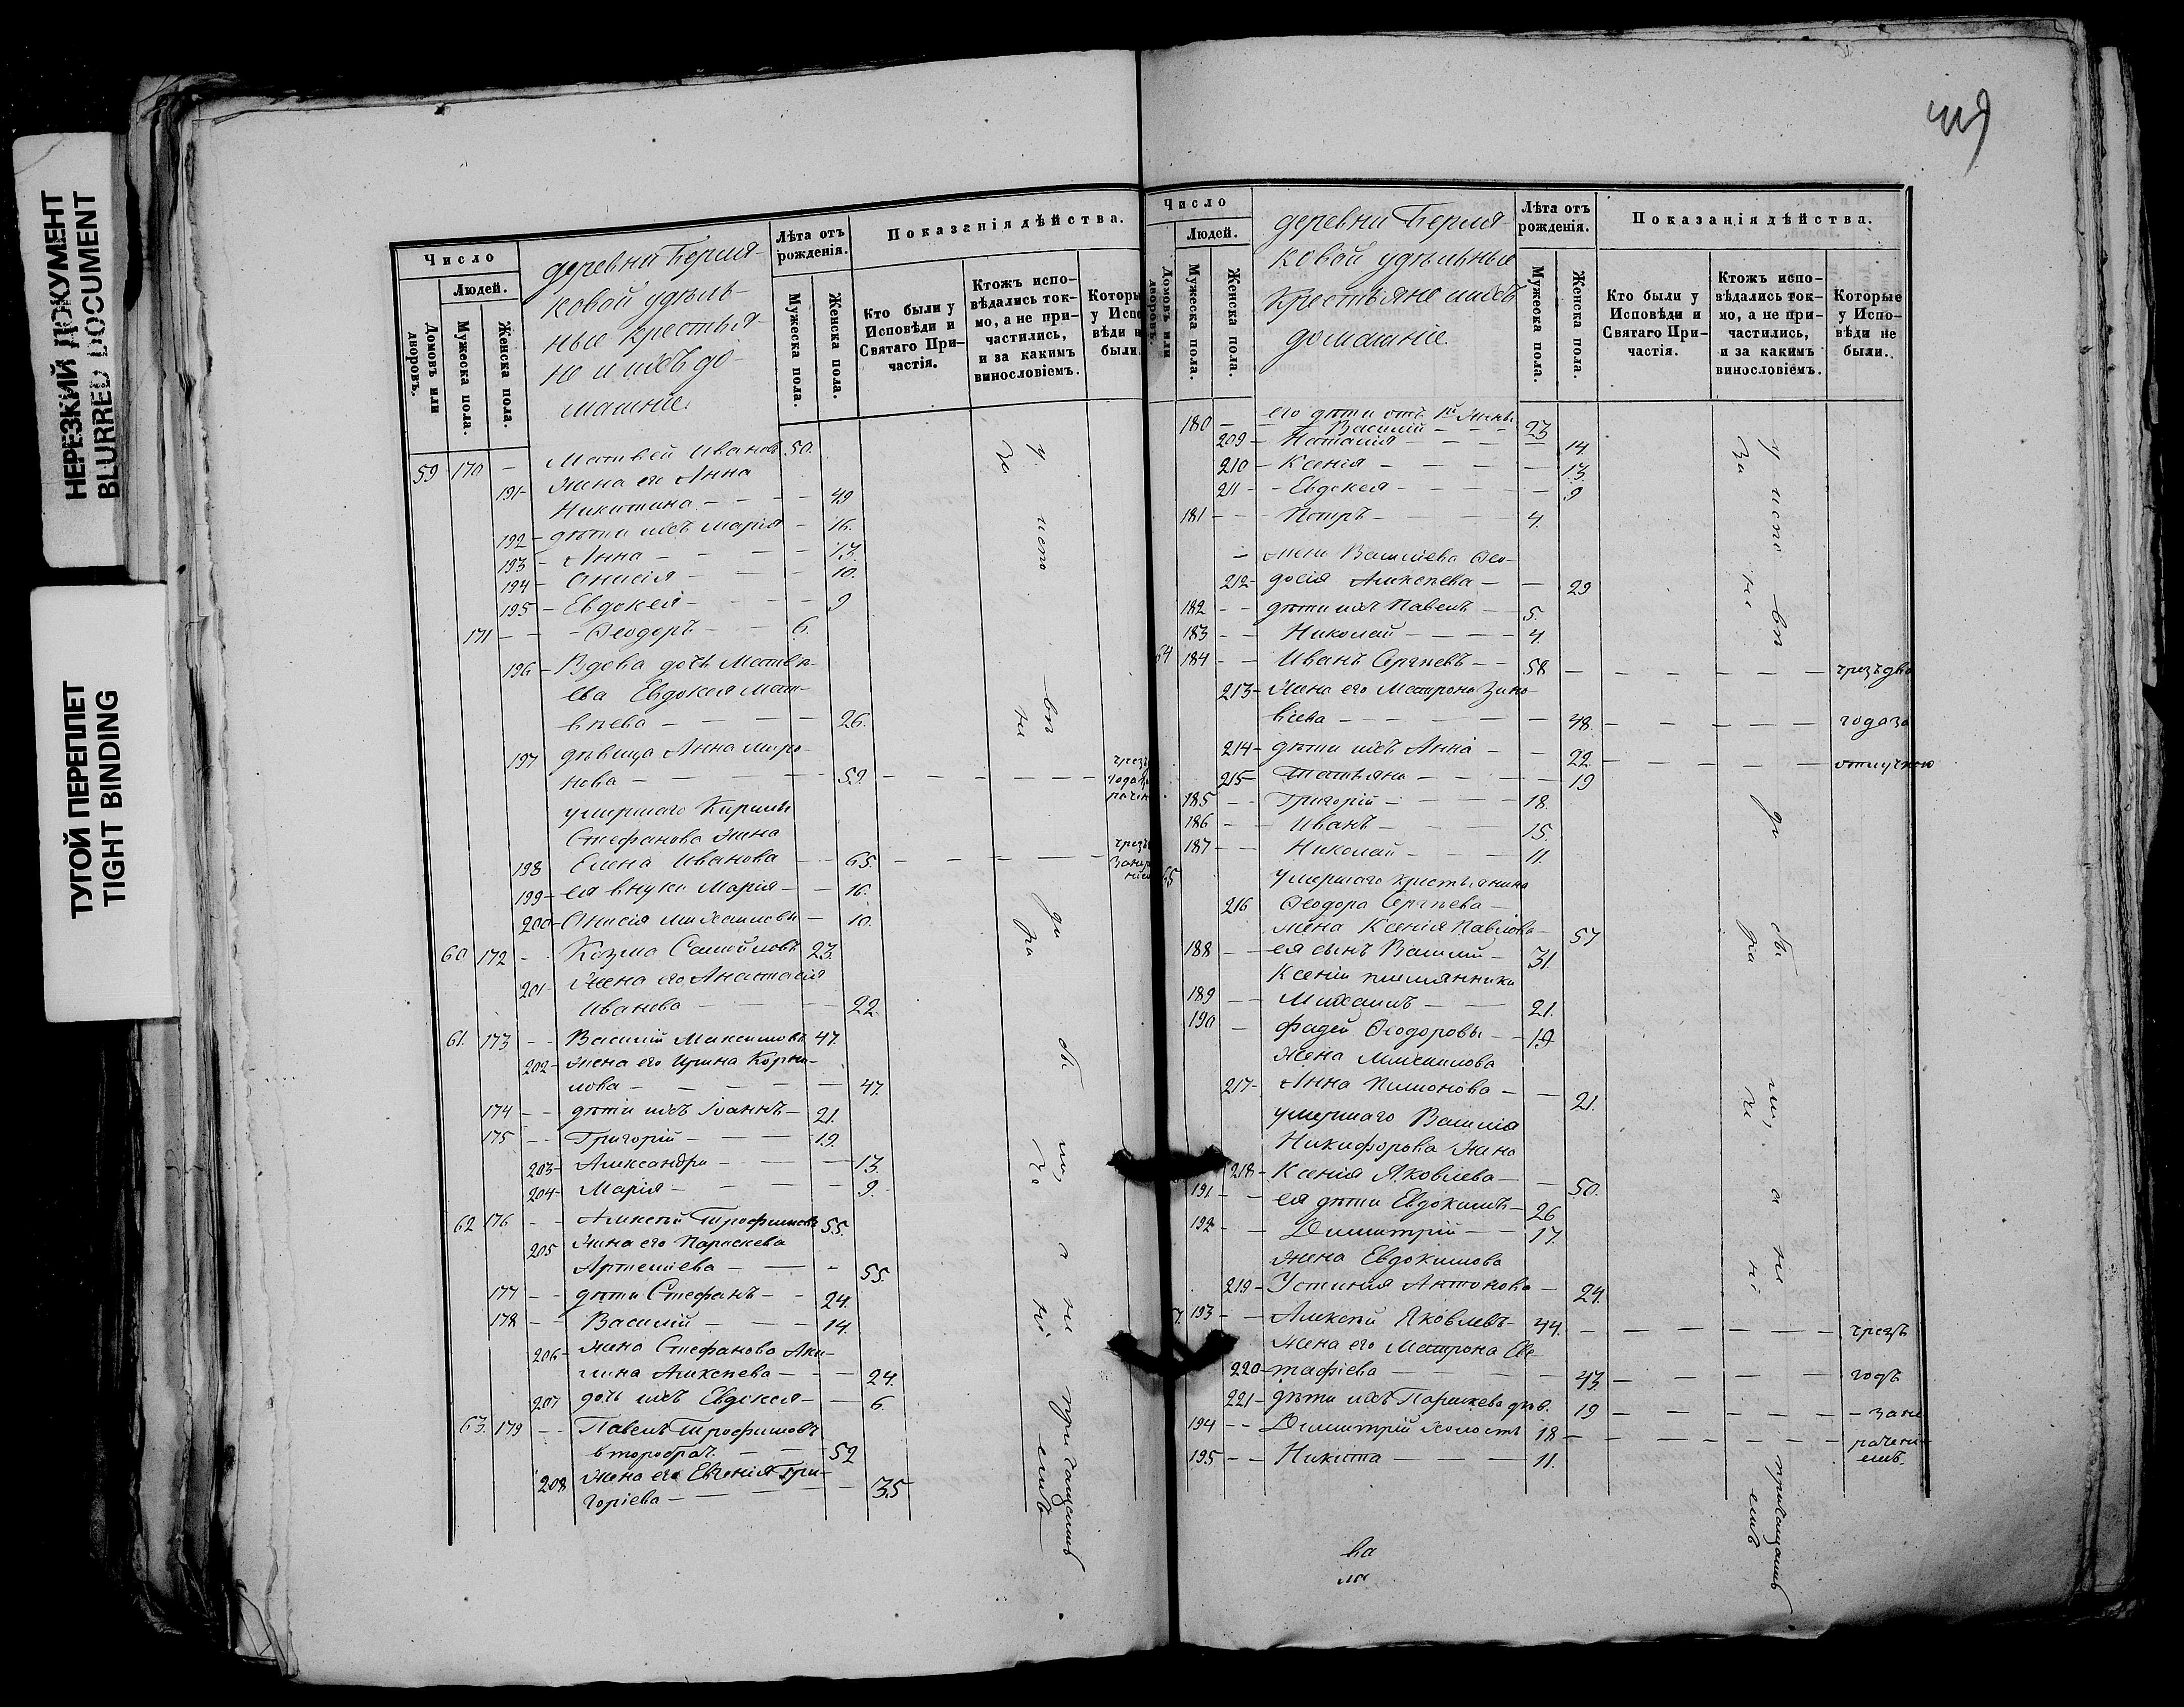 НЕРЕЗКИЙ ДОКУМЕНТ
BLURRED DOCUMENT
ТУГОЙ ПЕРЕПЛЕТ
TIGHT BINDING
Число
Людей.
Домовъ или дворовъ.
Мужеска пола.
Женска пола.
деревни Берля-
ковой удѣль-
ные крестья-
не и ихъ до-
машніе.
Лѣта отъ рожденія.
Мужеска пола.
Женска пола.
Показанія дѣйства.
Кто были у Исповѣди и Святаго При-частія.
Ктожъ испо-вѣдались ток-мо, а не при-частились, и за какимъ винословіемъ.
Которы у Испо вѣди н были.
59 170 – Матвѣй Ивановъ 50.
191 – Жена его Анна
Никитина – – – 49
192 – дѣти ихъ Марія – 16.
193 – Анна – – – 13.
194 – Анисія – – – 10.
195 – Евдокея – – – 9
171 – – Ѳеодоръ – – 6.
196 – Вдова дочь Матвѣ-
ева Евдокея Мат-
вѣева – – – 26.
197 дѣвица Анна Миро-
нова – – – 59. – – – – –
умершаго Кирилы
Стефанова жена
198 Елена Иванова – – 65. – – – – –
199 – ея внуки Марія – – 16.
200 – Анисія Михаиловы – 10.
60 172 – Козма Самойловъ 23.
201 – Жена его Анастасія
Иванова – – – 22.
61. 173 – – Василій Максимовъ 47.
202 – жена его Ирина Корни-
лова – – – 47.
174 – – дѣти ихъ Іоаннъ – 21.
175 – – Григорій – – – 19.
203 – Александра – – – 13.
204 – Марія – – – 9.
62 176 – – Алексѣй Трофимовъ 55.
205 Жена его Параскева
Артеміева – – – 55.
177 – – дѣти Стефанъ – – 24.
178 – – Василій – – – 14.
206 – жена Стефанова Аки-
лина Алексѣева – – – 24.
207 дочь ихъ Евдокея – – 6.
63. 179 – – Павелъ Трофимовъ
второбрач. – – – 52
208 Жена его Евгенія Гри-
горіева – – – 35
у испо – вѣ ди бы ли, а не причащались
за не ра че ні емъ
Число
Людей.
Домовъ или дворовъ.
Мужеска пола.
Женска пола.
деревни Берля-
ковой удѣльные
крестьяне и ихъ
домашніе.
Лѣта отъ рожденія.
Мужеска пола.
Женска пола.
Показанія дѣйства.
Кто были у Исповѣди и Святаго При-частія.
Ктожъ испо-вѣдались ток-мо, а не при-частились, и за какимъ винословіемъ.
Которые у Испо-вѣди не были.
его дѣти отъ 1й жены
180 – – Василій – – 23
209 – Наталія – – – 14
210 – Ксенія – – – 13.
211 – – Евдокея – – – 9
181 – – – Петръ – – – 4.
– жена Василіева Ѳео-
212 – досія Алексѣева – – 29
182 – – дѣти ихъ Павелъ – 5.
183 – – Николай – – – 4.
64 184 – – Иванъ Сергѣевъ – – 58 – – – – – чрезъ два
213 – Жена его Матрона Зино-
віева – – – 48. – – – – – года за
214 – дѣти ихъ Анна – – 22 – – – – – отлучкою
215 – Татьяна – – – 19
185 – – Григорій – – – 18.
186 – – Иванъ – – – 15.
187 – – Николай – – – 11.
65 умершаго крестьянина
216 Ѳеодора Сергѣева –
жена Ксенія Павлова – 57
188 – – ея сынъ Василій – 31.
Ксеніи племянники
189 – – Михаилъ – – 21.
190 – Фадей Ѳеодоровы – – 19
жена Михаилова
217 – Анна Пимонова – – 21.
умершаго Василія
Никифорова жена
218 – Ксенія Яковлева – – 50.
191 – – ея дѣти Евдокимъ – 26
192 – – Димитрій – – 17.
жена Евдокимова
219 – Устинія Антонова – 24.
193 – – Алексѣй Яковлевъ – 44. – – – – – чрезъ
Жена его Матрона Ев-
220 – тафіева – – – 43. – – – – годъ
221 – дѣти ихъ Параскева дѣв. 19 – – – – – за не
194 – – Димитрій холостъ 18 – – – – – рачені-
195 – – Никита – – – 11. емъ.
у испо – вѣ ди бы ли, а не причащались
за не ра че ні емъ